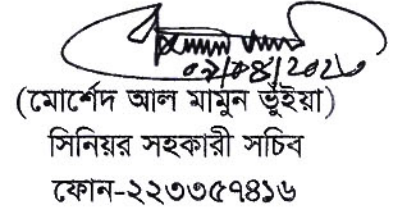 (মোর্শেদ আল মামুন ভূঁইয়া)
সিনিয়র সহকারী সচিব
ফোন-২২৩৩৫৭৪১৬